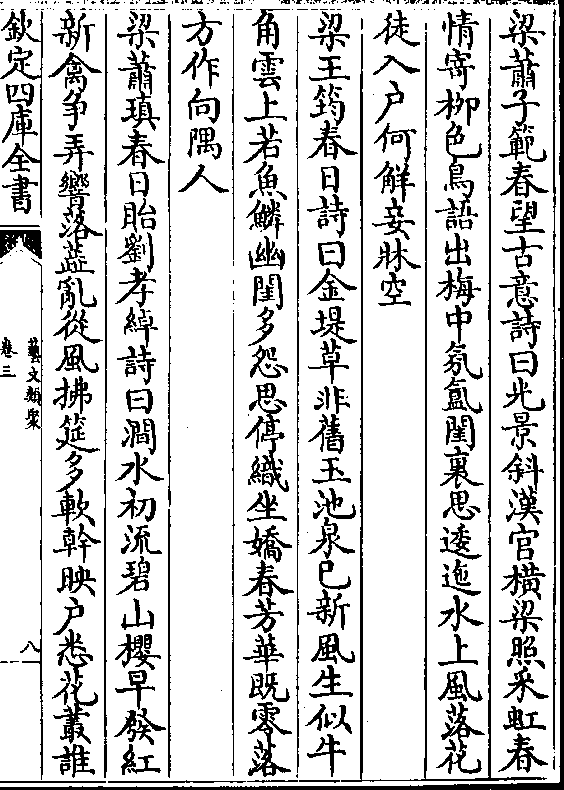 梁蕭子範春望古意詩曰光景斜漢官橫梁照采虹春
情寄栁色鳥語出梅中氛氳閨裏思逶迤水上風落花
徒入户何解妾牀空
梁王筠春日詩曰金堤草非舊玉池泉已新風生似牛
角雲上若魚鱗幽閨多怨思停織坐嬌春芳華既零落
方作向隅人
梁蕭瑱春日貽劉孝綽詩曰澗水初流碧山櫻早發紅
新禽争弄響落蘂亂從風拂筵多軟幹映户悉花叢誰
欽定四庫全書
藝文類聚
卷三
八